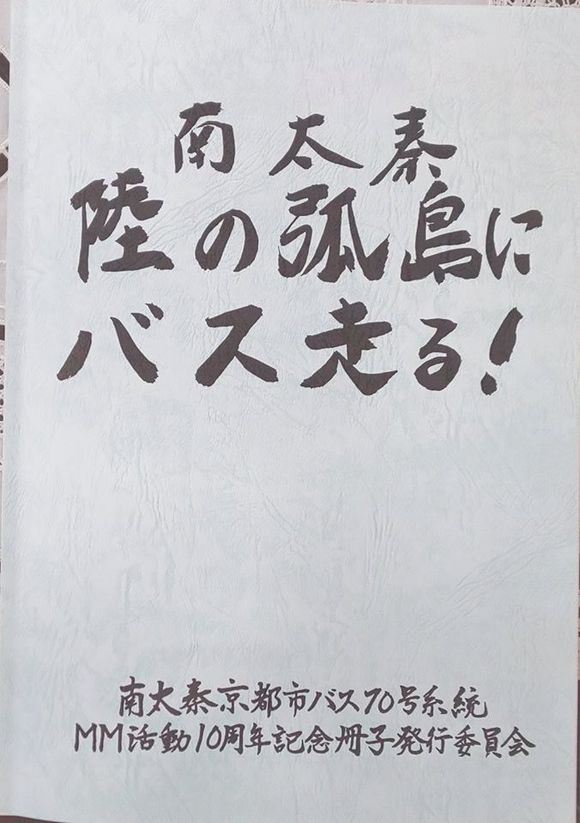 南太秦
陸の孤島に
バス走る!
南太秦京都市バス70号系統
MM活動10周年記念冊子発行委員会